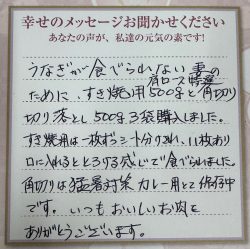 幸せのメッセージお聞かせください
あなたの声が、私達の元気の素です!
うなぎが食べられない妻の
ために すき焼用500gと角切り
角ロース特選
切り落とし500g 3袋購入しました。
すき焼用は一枚ずつシート分けされ、11枚あり
口に入れるととろける感じで食べられました。
角切りは猛暑対策カレー用として保存中
です。いつもおいしいお肉を
ありがとうございます。